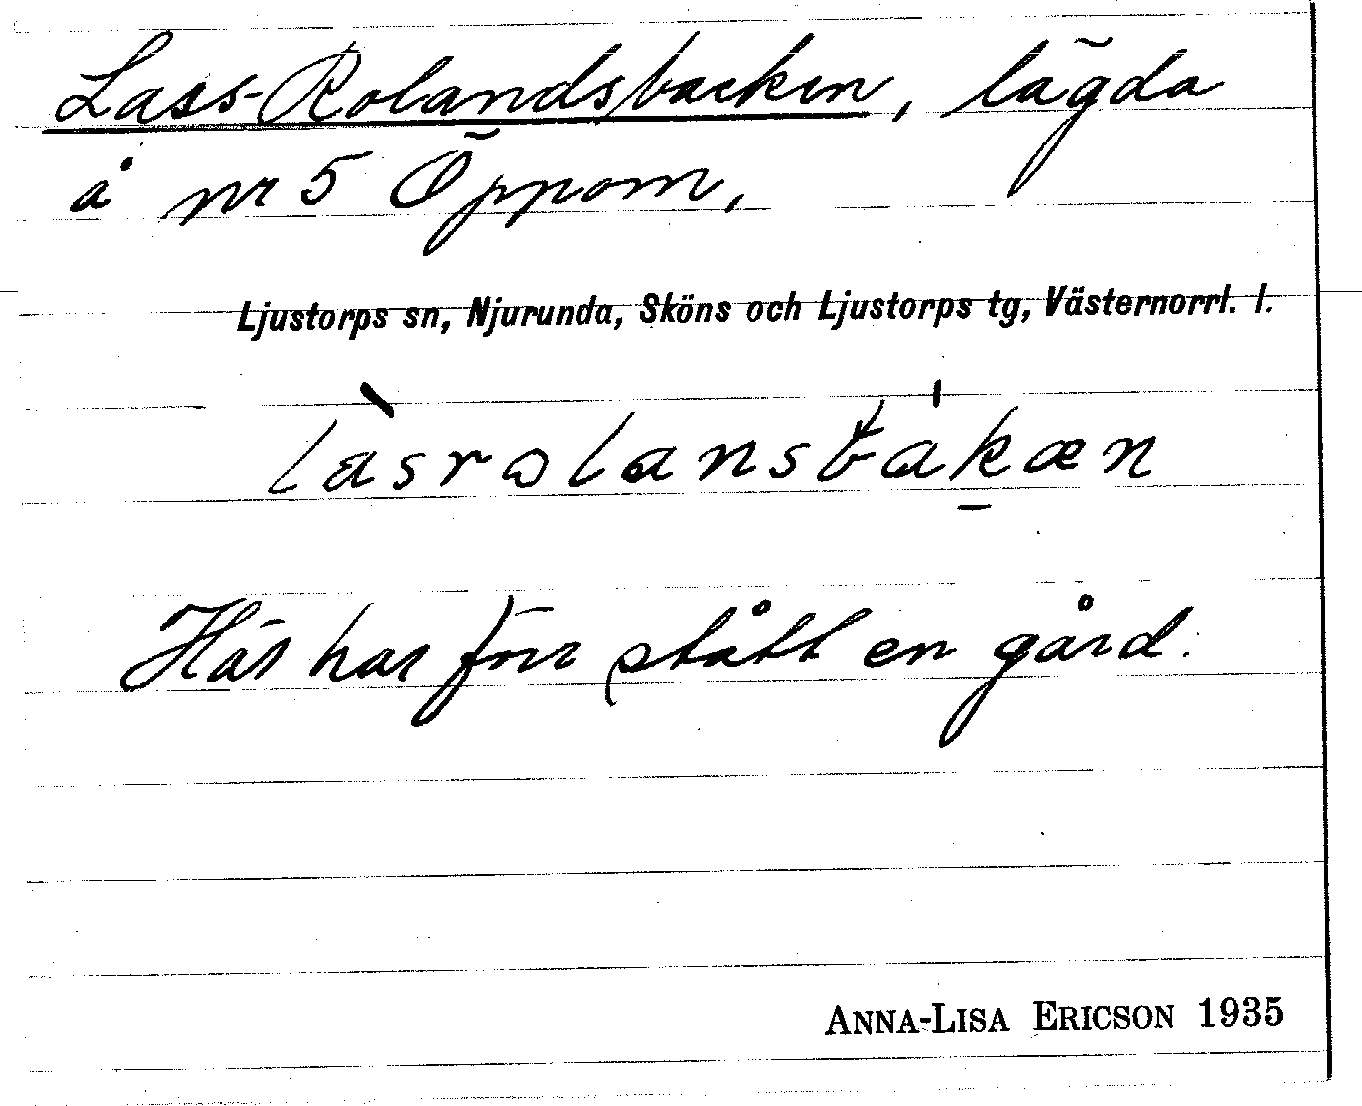 Lass-Rolandsbacken, lägda
å nr 5 Öppom,
Ljustorps sn, Njurunda, Sköns och Ljustorps tg, Västernorrl. l.
Här har förr stått en gård.
ANNA-LISA ERICSON 1935